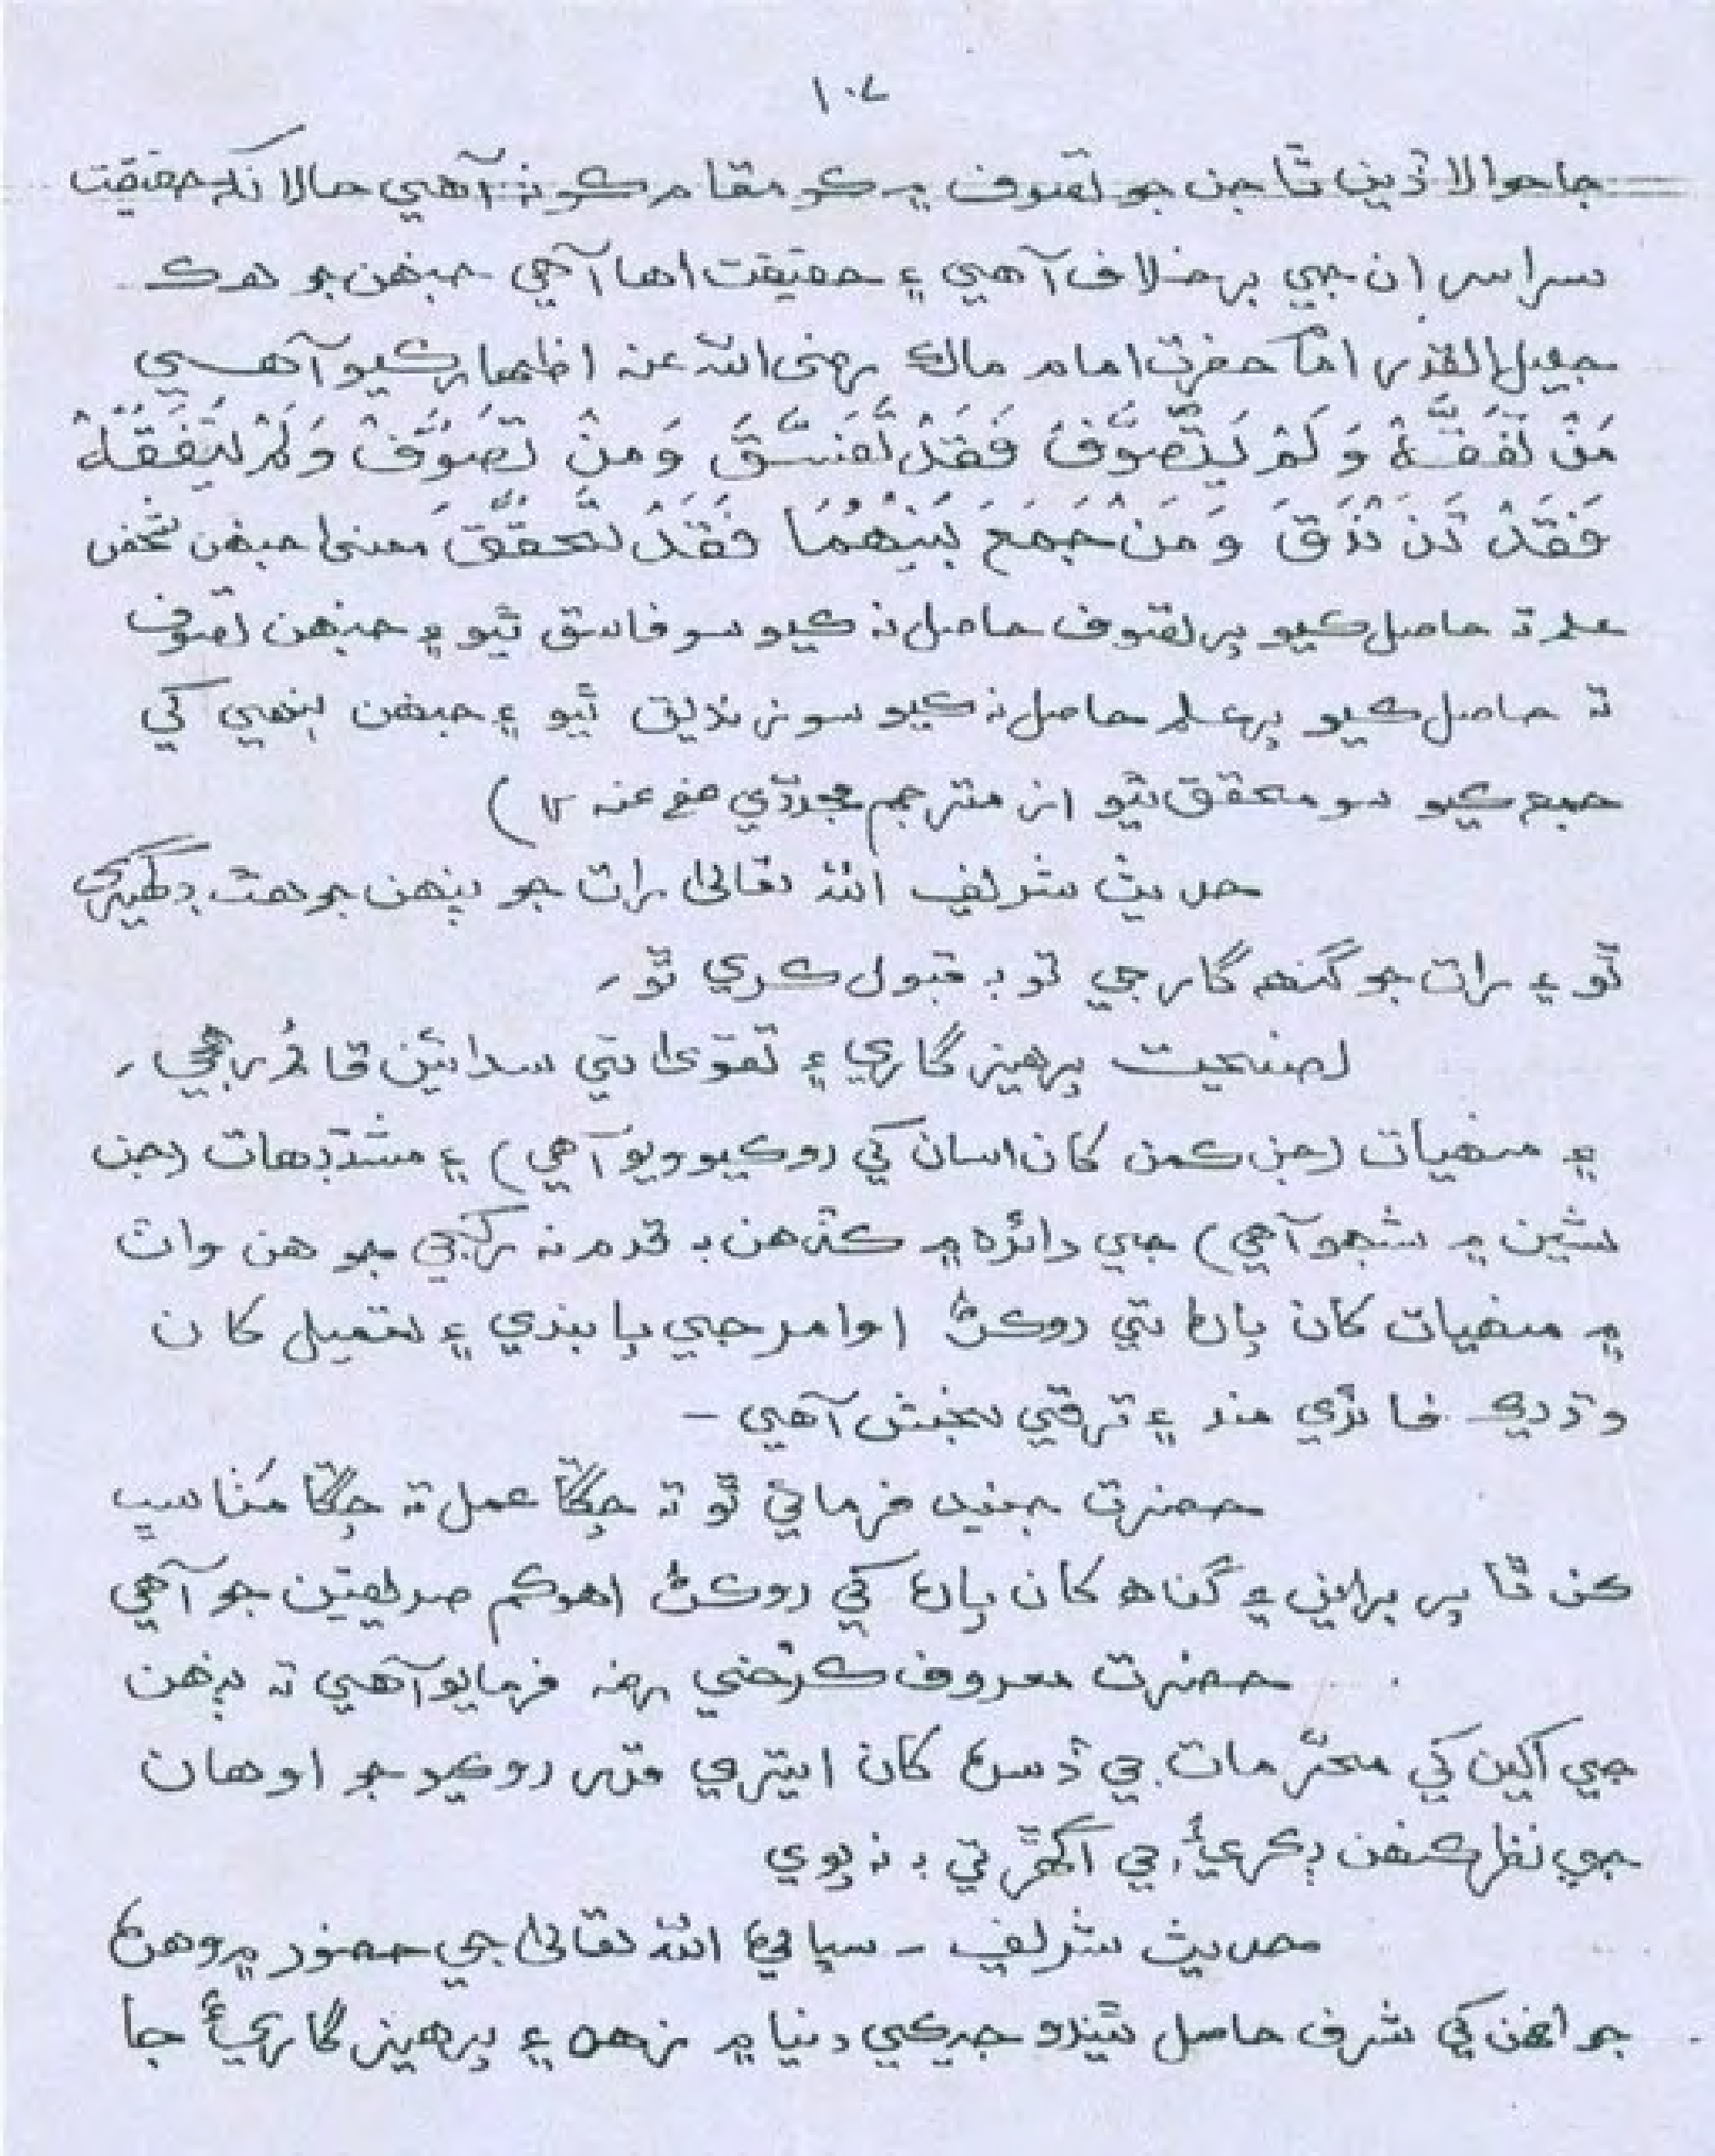 ١٠٧
جا حوالا ڏين ٿا جن جو تصوف ۾ ڪو مقام ڪونه آهي حالانڪه حقيقت
سراسر ان جي برخلاف آهي ۽ حقيقت اها آهي جنهن جو هڪ
جليل القدر امام حضرت امام مالڪ رضی الله عنه اظهار ڪيو آهي
مَنْ تَفَقَّهَ وَلَمْ يَتَصَوَّفْ فَقَدْ تَفَسَّقَ وَمَنْ تَصَوَّفَ وَلَمْ يَتَفَقَّهْ
فَقَدْ تَزَنْدَقَ وَمَنْ جَمَعَ بَيْنَهُمَا فَقَدْ تَحَقَّقَ معنیٰ جنهن شخص
علم ته حاصل ڪيو پر تصوف حاصل نه ڪيو سو فاسق ٿيو ۽ جنهن تصوف
ته حاصل ڪيو پر علم حاصل نه ڪيو سو زنديق ٿيو ۽ جنهن ٻنهي کي
جمع ڪيو سو محقق ٿيو از مترجم مجددي عنه ١٢)
حديث شريف الله تعالیٰ رات جو پنهن جو هٿ ڊگهيري
ٿو ۽ رات جو گنهه گار جي توبه قبول ڪري ٿو،
نصيحت پرهيز گاري ۽ تقویٰ تي سدائين قائم رهجي،
۽ منهيات (جن ڪمن کان اسان کي روڪيو ويو آهي) ۽ مشتبهات (جن
شين ۾ شبهو آهي) جي دائره ۾ ڪڏهن به قدم نه رکجي جو هن وات
۾ منهيات کان پاڻ تي روڪڻ اوامر جي پابندي ۽ تعميل کان
وڌيڪ فائدي مند ۽ ترقي بخش آهي –
حضرت جنيد فرمائي ٿو ته چڱا عمل ته چڱا مناسب
ڪن ٿا پر برائين ۽ گناهه کان پاڻ کي روڪڻ اهو ڪم صديقين جو آهي
حضرت معروف ڪرخي رضه فرمايو آهي ته پنهن
جي اکين کي محرمات جي ڏسڻ کان ايتري قدر روڪيو جو اوهان
جي نظر ڪنهن ٻڪريءَ جي اگهڙ تي به نه پوي
حديث شريف – سڀاڻي الله تعالیٰ جي حضور ۾ وهڻ
جو انهن کي شرف حاصل ٿيندو جيڪي دنيا ۾ زهد ۽ پرهيز گاريءَ جا